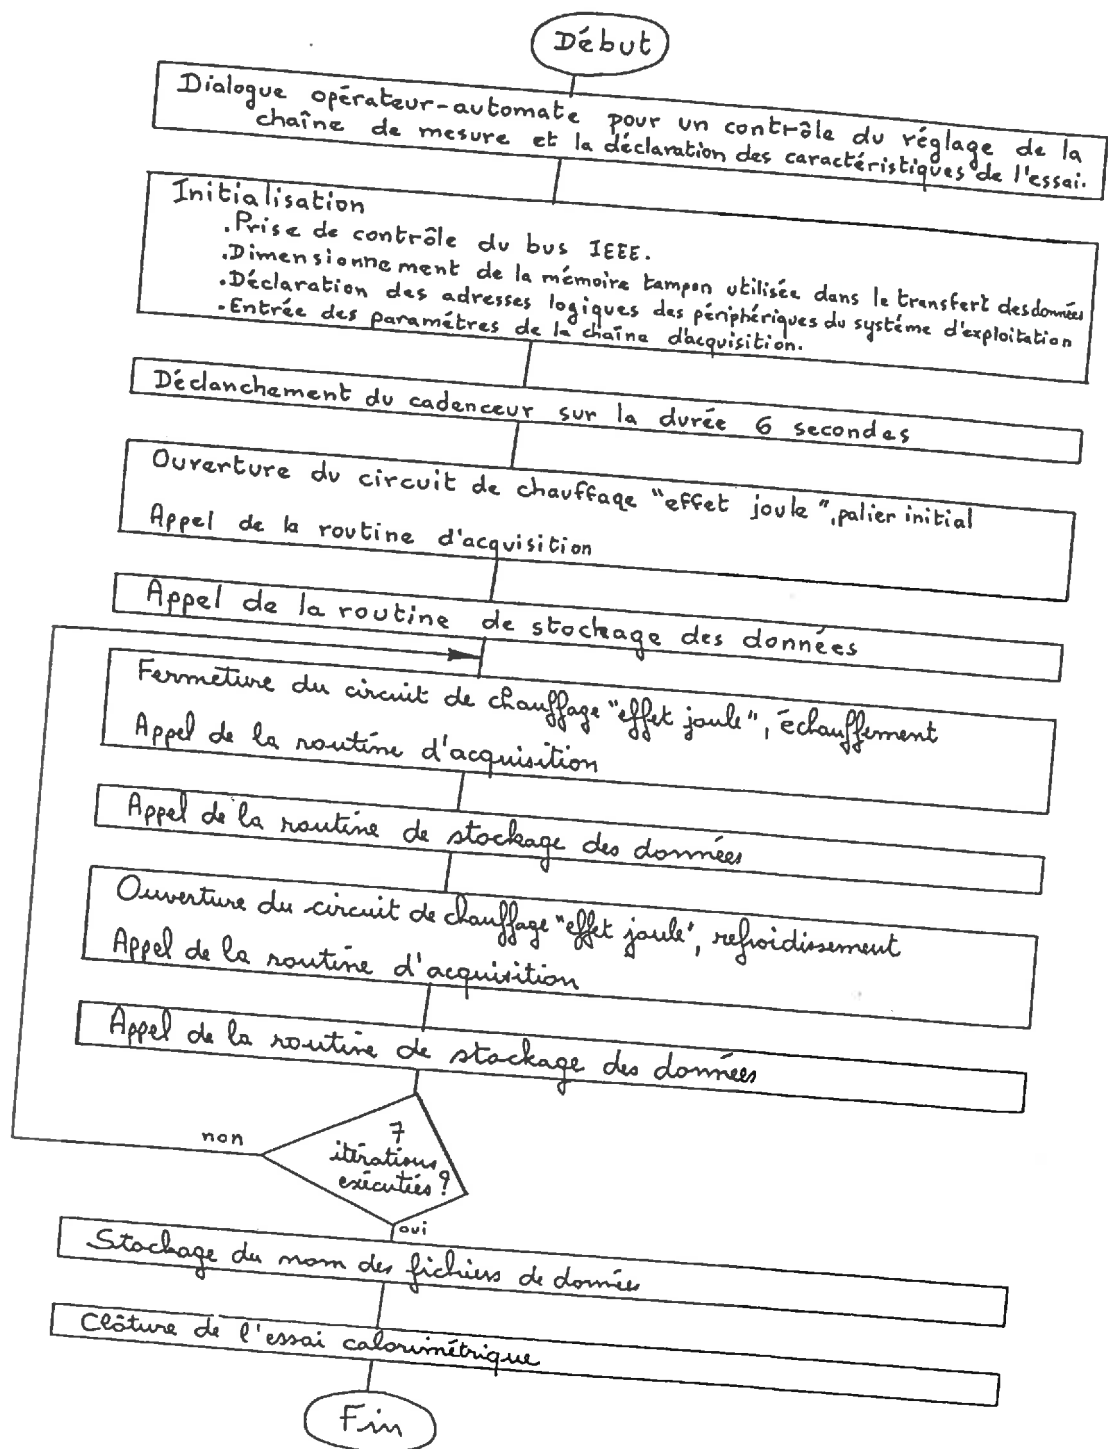 Début
Dialogue opérateur-automate pour un contrôle du réglage de la
chaîne de mesure et la déclaration des caractéristiques de l'essai.
Initialisation
.Prise de contrôle du bus IEEE.
.Dimensionnement de la mémoire tampon utilisée dans le transfert des données
.Déclaration des adresses logiques des périphériques du systéme d'exploitation
.Entrée des paramétres de la chaîne d'acquisition.
Déclanchement du cadenceur sur la durée 6 secondes
Ouverture du circuit de chauffage "effet joule", palier initial
Appel de la routine d'acquisition
Appel de la routine de stockage des données
Fermeture du circuit de chauffage "effet joule", échauffement
Appel de la routine d'acquisition
Appel de la routine de stockage des données
Ouverture du circuit de chauffage "effet joule", refroidissement
Appel de la routine d'acquisition
Appel de la routine de stockage des données
non
7
itérations
exécutées ?
oui
Stockage du nom des fichiers de données
Clôture de l'essai calorimétrique
Fin